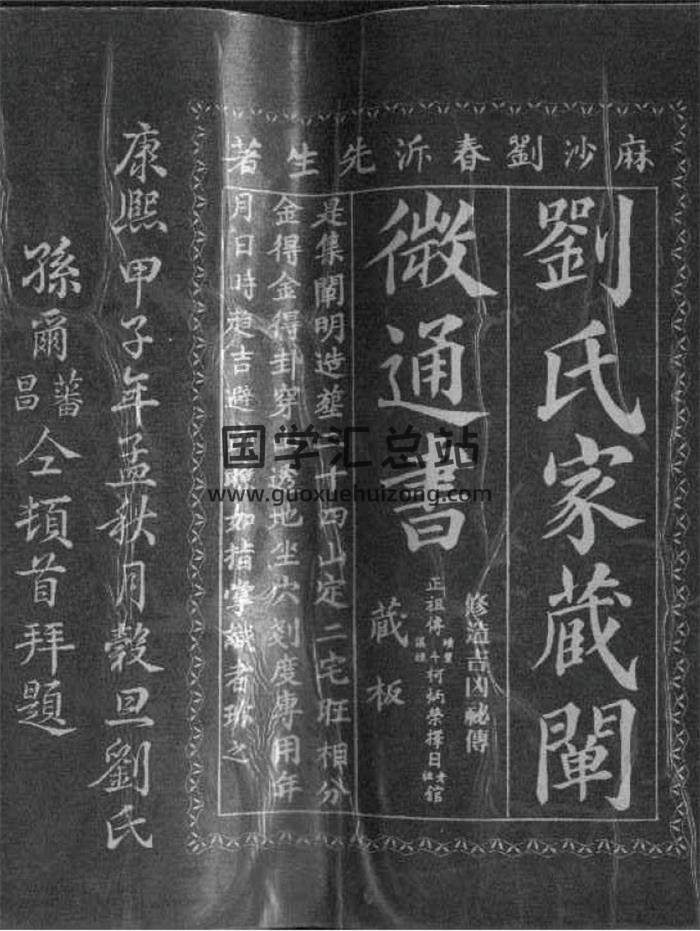 麻沙劉春沂先生著
劉氏家蔵闡
微通書
修造吉凶秘傳
正祖傳
柯炳榮擇日
館
蔵板
是集闡明造塟二十四山定二宅旺相分
金得金得卦穿透地坐穴刻度專用年
月日時趋吉避如指掌識者珎之
康熈甲子年孟秋月穀旦劉氏
孫爾蕃昌仝頓首拜題
国学汇总站
www.guoxuehuizong.com